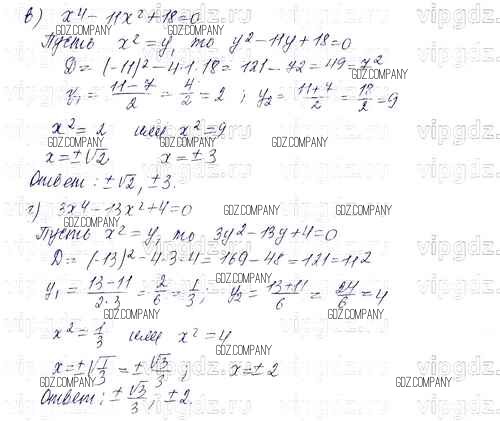 в) x⁴ – 11x² + 18 = 0
Пусть x² = y, то y² – 11y + 18 = 0
D = (–11)² – 4·1·18 = 121 – 72 = 49 = 7²
y₁ = (11 – 7)/2 = 4/2 = 2 ; y₂ = (11 + 7)/2 = 18/2 = 9
x² = 2 или x² = 9
x = ±√2 x = ± 3
Ответ: ±√2, ±3.
г) 3x⁴ – 13x² + 4 = 0
Пусть x² = y, то 3y² – 13y + 4 = 0
D = (–13)² – 4·3·4 = 169 – 48 = 121 = 11²
y₁ = (13 – 11)/(2·3) = 2/6 = 1/3 ; y₂ = (13 + 11)/6 = 24/6 = 4
x² = 1/3 или x² = 4
x = ±√(1/3) = ± √3/3 ; x = ± 2
Ответ: ± √3/3, ±2.
GDZ.COMPANY
vipgdz.ru